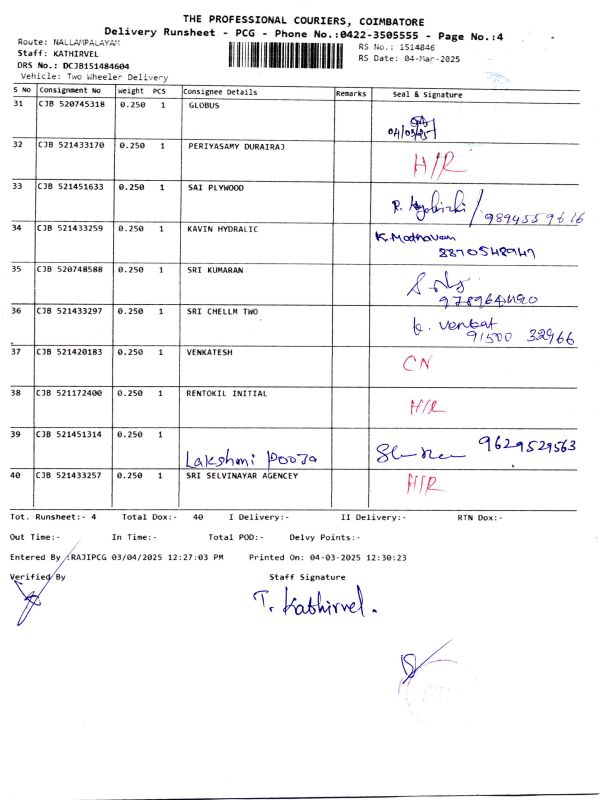 THE PROFESSIONAL COURIERS, COIMBATORE
Delivery Runsheet - PCG - Phone No.:0422-3505555 - Page No.:4
Route: NALLAMPALAYAM
RS No.: 1514846
Staff: KATHIRVEL
RS Date: 04-Mar-2025
DRS No.: DCJB151484604
Vehicle: Two Wheeler Delivery
S No Consignment No Weight PCS Consignee Details Remarks Seal & Signature
31 CJB 520745318 0.250 1 GLOBUS
32 CJB 521433170 0.250 1 PERIYASAMY DURAIRAJ H/R
33 CJB 521451633 0.250 1 SAI PLYWOOD 9894559616
34 CJB 521433259 0.250 1 KAVIN HYDRALIC K. Madhavan
8870548947
35 CJB 520748588 0.250 1 SRI KUMARAN
36 CJB 521433297 0.250 1 SRI CHELLM TWO k. venbat
91500 32966
37 CJB 521420183 0.250 1 VENKATESH CN
38 CJB 521172400 0.250 1 RENTOKIL INITIAL H/R
39 CJB 521451314 0.250 1 Lakshmi Pooja 9629529563
40 CJB 521433257 0.250 1 SRI SELVINAYAR AGENCEY H/R
Tot. Runsheet:- 4 Total Dox:- 40 I Delivery:- II Delivery:- RTN Dox:-
Out Time:- In Time:- Total POD:- Delvy Points:-
Entered By :RAJIPCG 03/04/2025 12:27:03 PM Printed On: 04-03-2025 12:30:23
Verified By Staff Signature
T. Kathirvel.